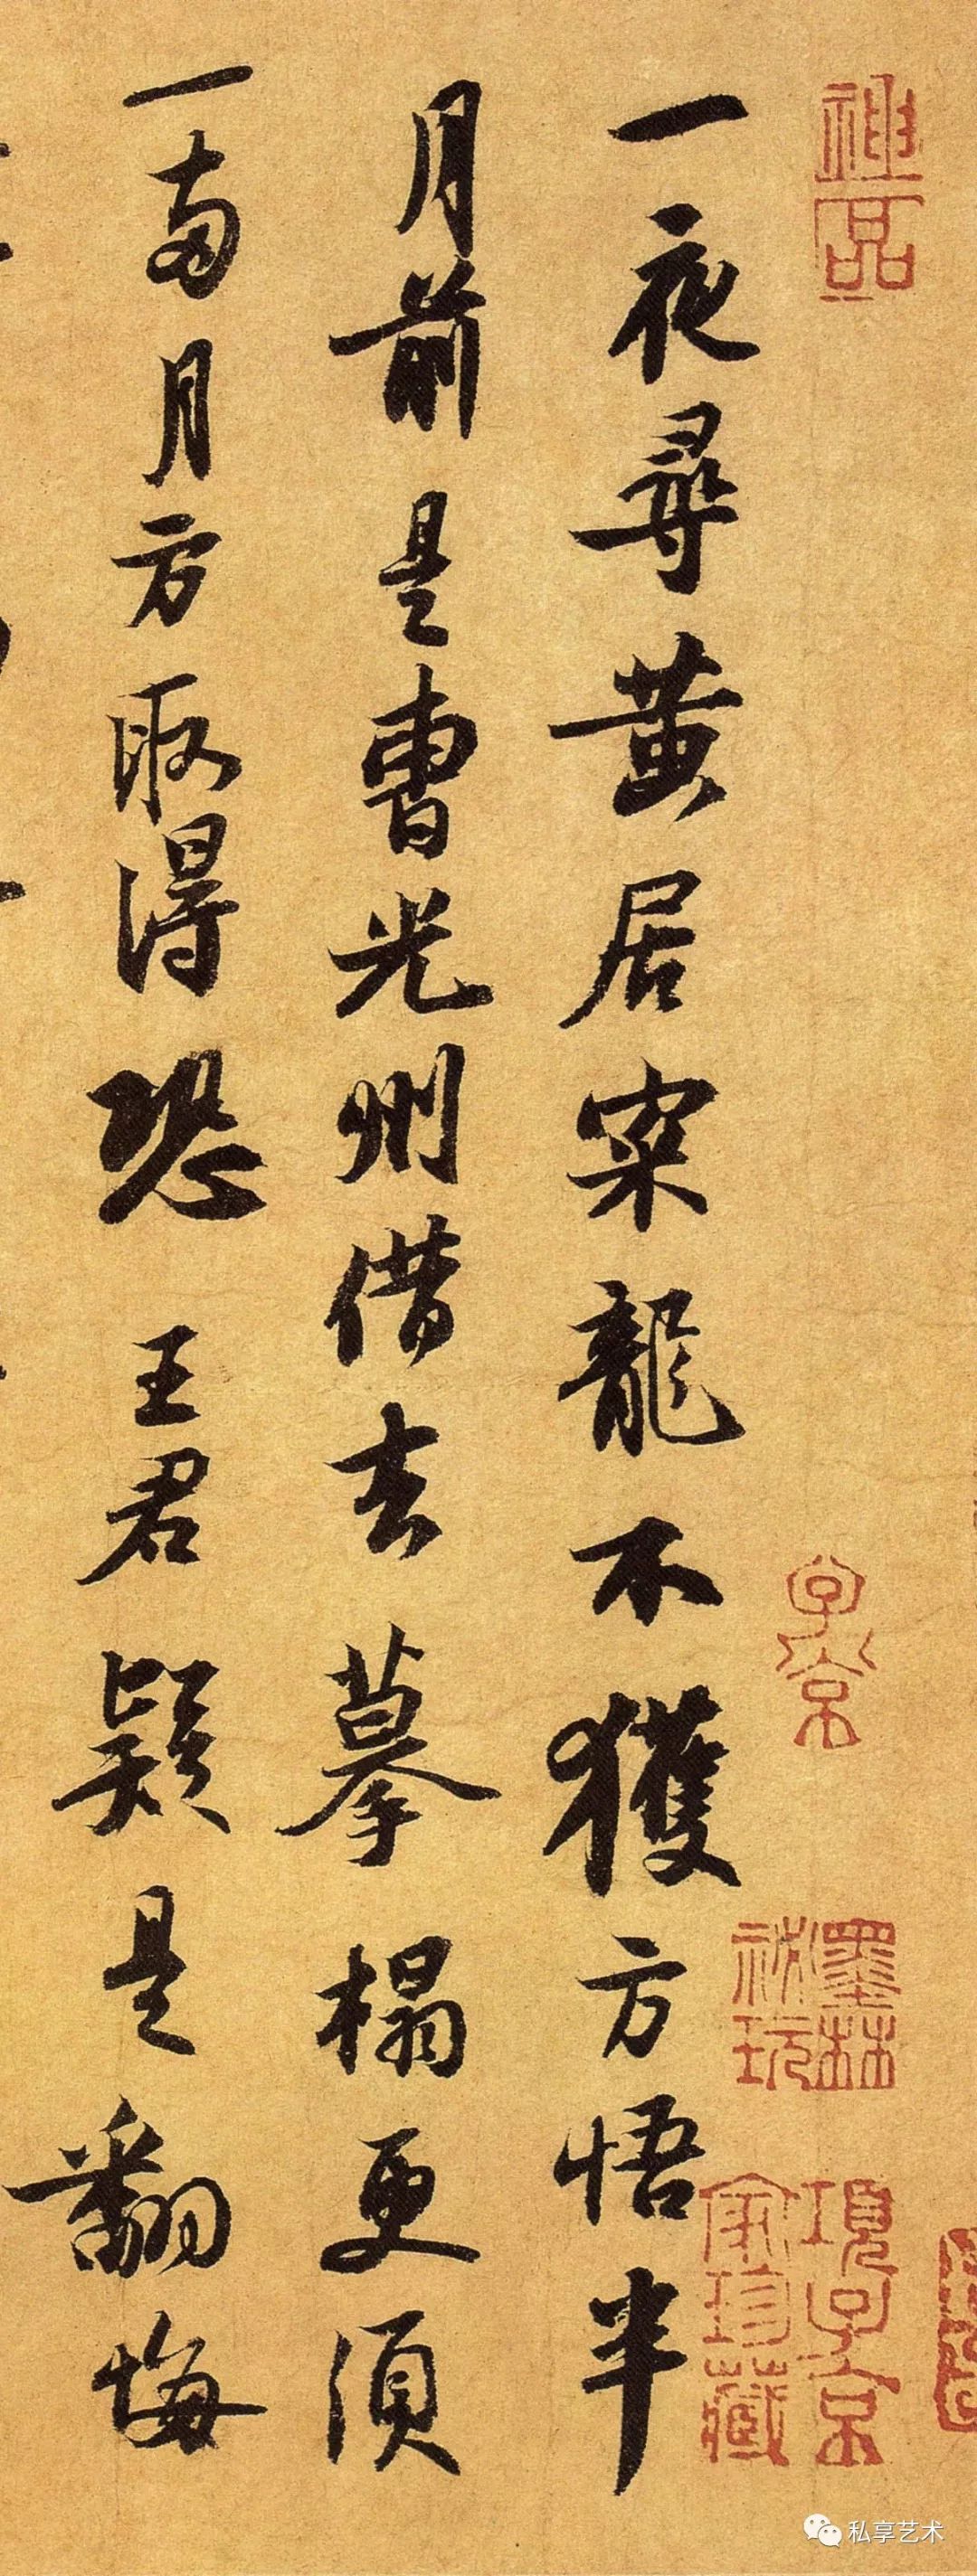 一夜尋黃居寀龍不獲方悟半
月前是曹光州借去摹榻更須
一兩月方取得恐王君疑是翻悔
神品
子京
墨林祕玩
項子京家珍藏
私享艺术